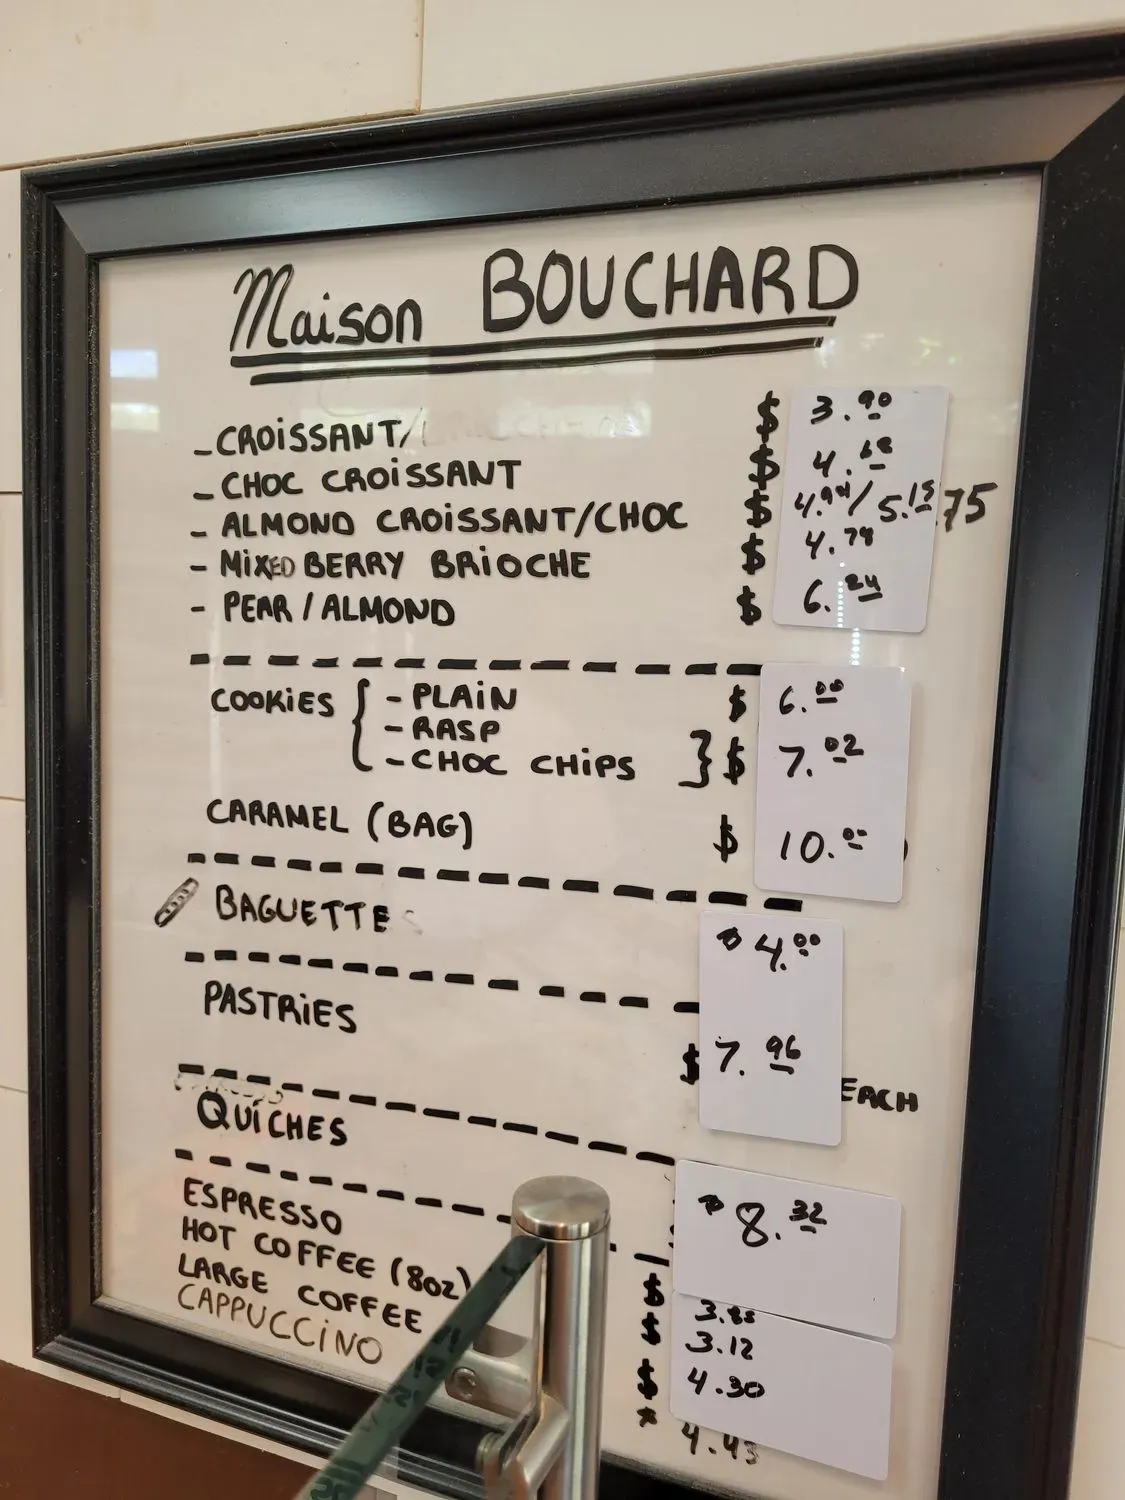 Maison BOUCHARD
- CROISSANT/ $ 3.90
- CHOC CROISSANT $ 4.68
- ALMOND CROISSANT/CHOC $ 4.94/5.15 75
- MIXED BERRY BRIOCHE $ 4.78
- PEAR/ALMOND $ 6.24
COOKIES { - PLAIN $ 6.00
- RASP
- CHOC CHIPS } $ 7.02
CARAMEL (BAG) $ 10.00
BAGUETTE $ 4.00
PASTRIES $ 7.96 EACH
QUICHES $ 8.32
ESPRESSO $ 3.88
HOT COFFEE (8oz) $ 3.12
LARGE COFFEE $ 4.30
CAPPUCCINO $ 4.43